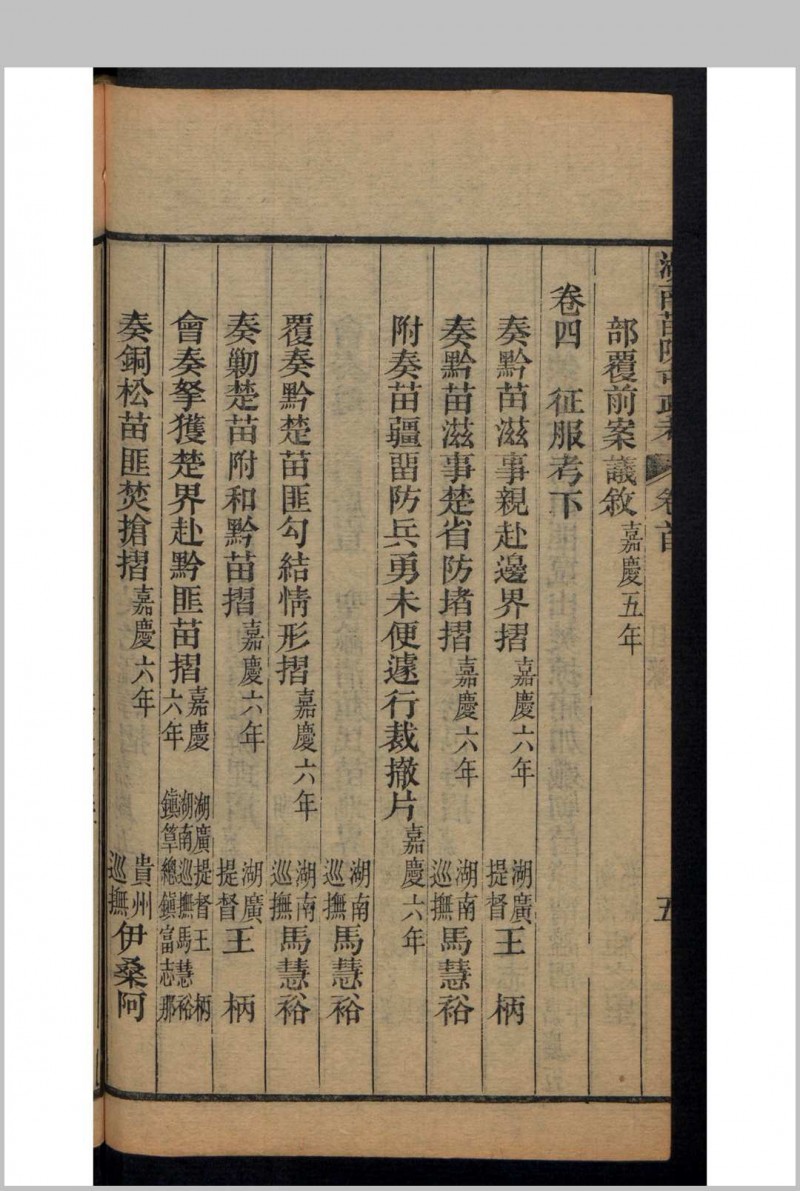 湖南苗防屯政考 卷首 五
部覆前案議敘嘉慶五年
卷四 征服考下
奏黔苗滋事親赴邊界摺嘉慶六年 湖廣提督王 柄
奏黔苗滋事楚省防堵摺嘉慶六年 湖南巡撫馬慧裕
附奏苗疆留防兵勇未便遽行裁撤片嘉慶六年
湖南巡撫馬慧裕
覆奏黔楚苗匪勾結情形摺嘉慶六年 湖南巡撫馬慧裕
奏勦楚苗附和黔苗摺嘉慶六年 湖廣提督王 柄
會奏拏獲楚界赴黔匪苗摺嘉慶六年 湖廣提督王 柄 湖南巡撫馬慧裕 鎮筸總鎮富志那
奏銅松苗匪焚搶摺嘉慶六年 貴州巡撫伊桑阿